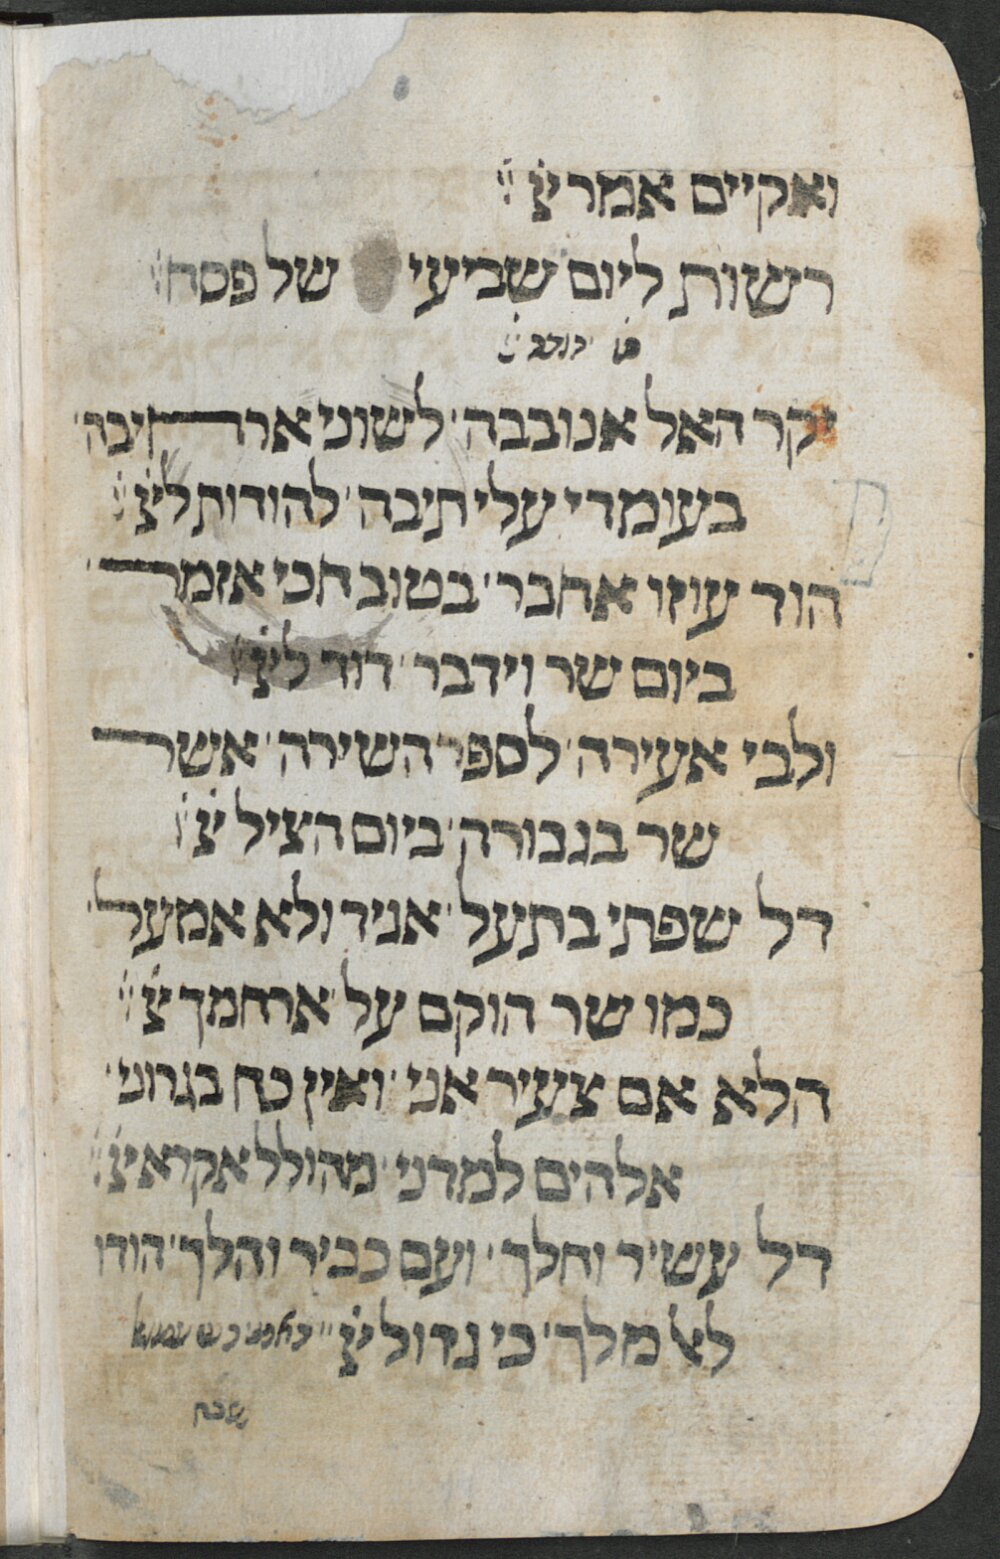 ואקיים אמר יֹיֹ
רשות ליום שביעי של פסח
יקר האל אנובבה׳ לשוני ארחיבה׳
בעומדי עלי תיבה׳ להודות ליֹיֹ
הוד עוזו אחבר׳ בטוב חכי אזמר׳
ביום שר וידבר׳ דוד ליֹיֹ
ולבי אעירה׳ לספר השירה׳ אשר
שר בגבורה׳ ביום הציל יֹיֹ
דל שפתי בתעל׳ אניד ולא אמעל׳
כמו שר הוקם על׳ ארחמך יֹיֹ
הלא אם צעיר אני׳ ואין כח בגרוני׳
אלהים למדני׳ מהולל אקרא יֹיֹ
דל עשיר וחלך׳ ועם כביר והלך׳ הודו
לאל מלך׳ כי גדול יֹיֹ